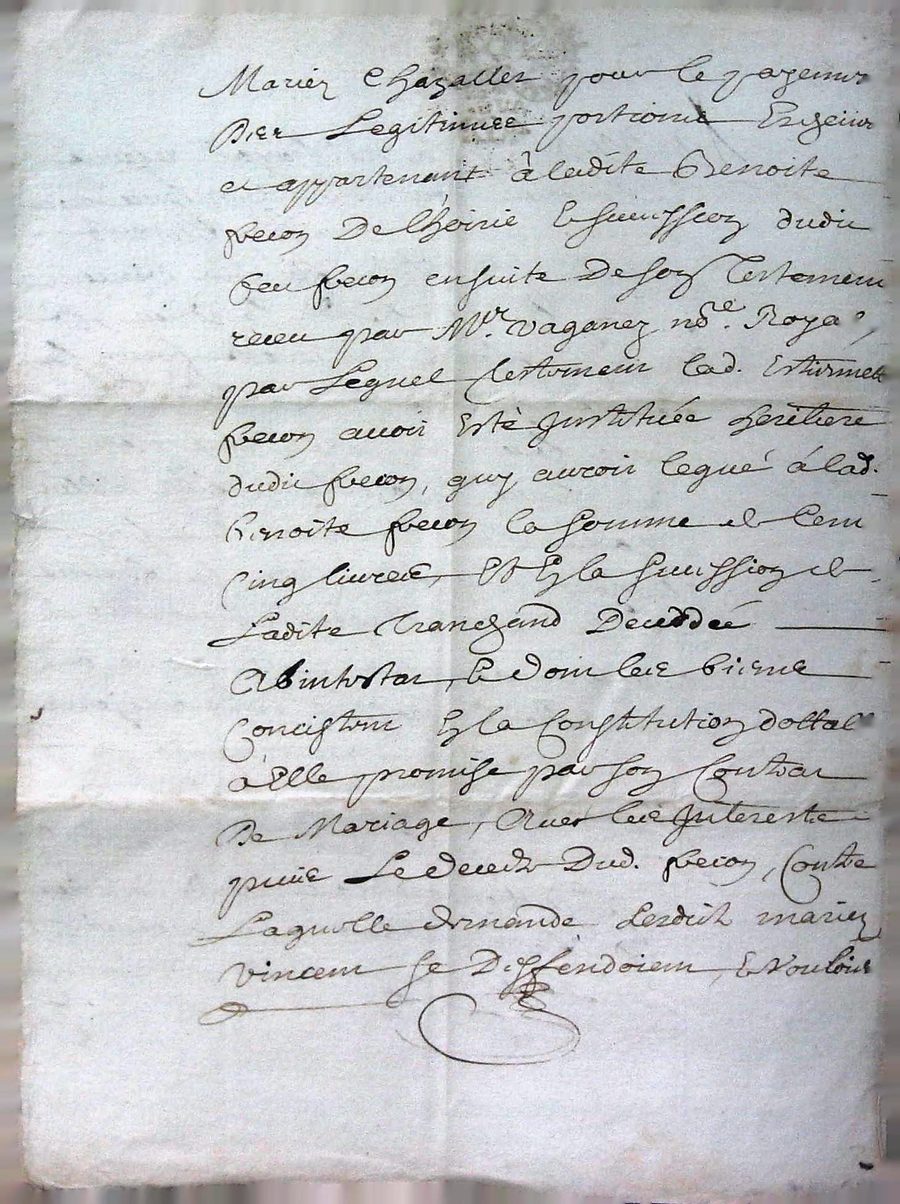 Mariez Chazalles pour le payemen
Des Legitimes portions Escheus
et appartenant à ladite Benoite
frecon De l'hoirie & succession dudit
feu frecon ensuite De son Testament
receu par Mr. vaganez nore. Royal,
par Lequel testament lad. Estiennette
frecon avoir Esté Instituée heritiere
dudit frecon, quy auroit legué à lad.
Benoite frecon la somme de Cent
cinq livres, Et En la succession de
Ladite Tranchand Decedée
Abintestat, & dont les biens
Concistent En la Constitution dottall
à Elle promise par son Contrat
De Mariage, Avec les Interests
puis Le deceds Dud. frecon, Contre
Laquelle demande Lesdits mariez
vincent se Deffendoient, & Vouloient